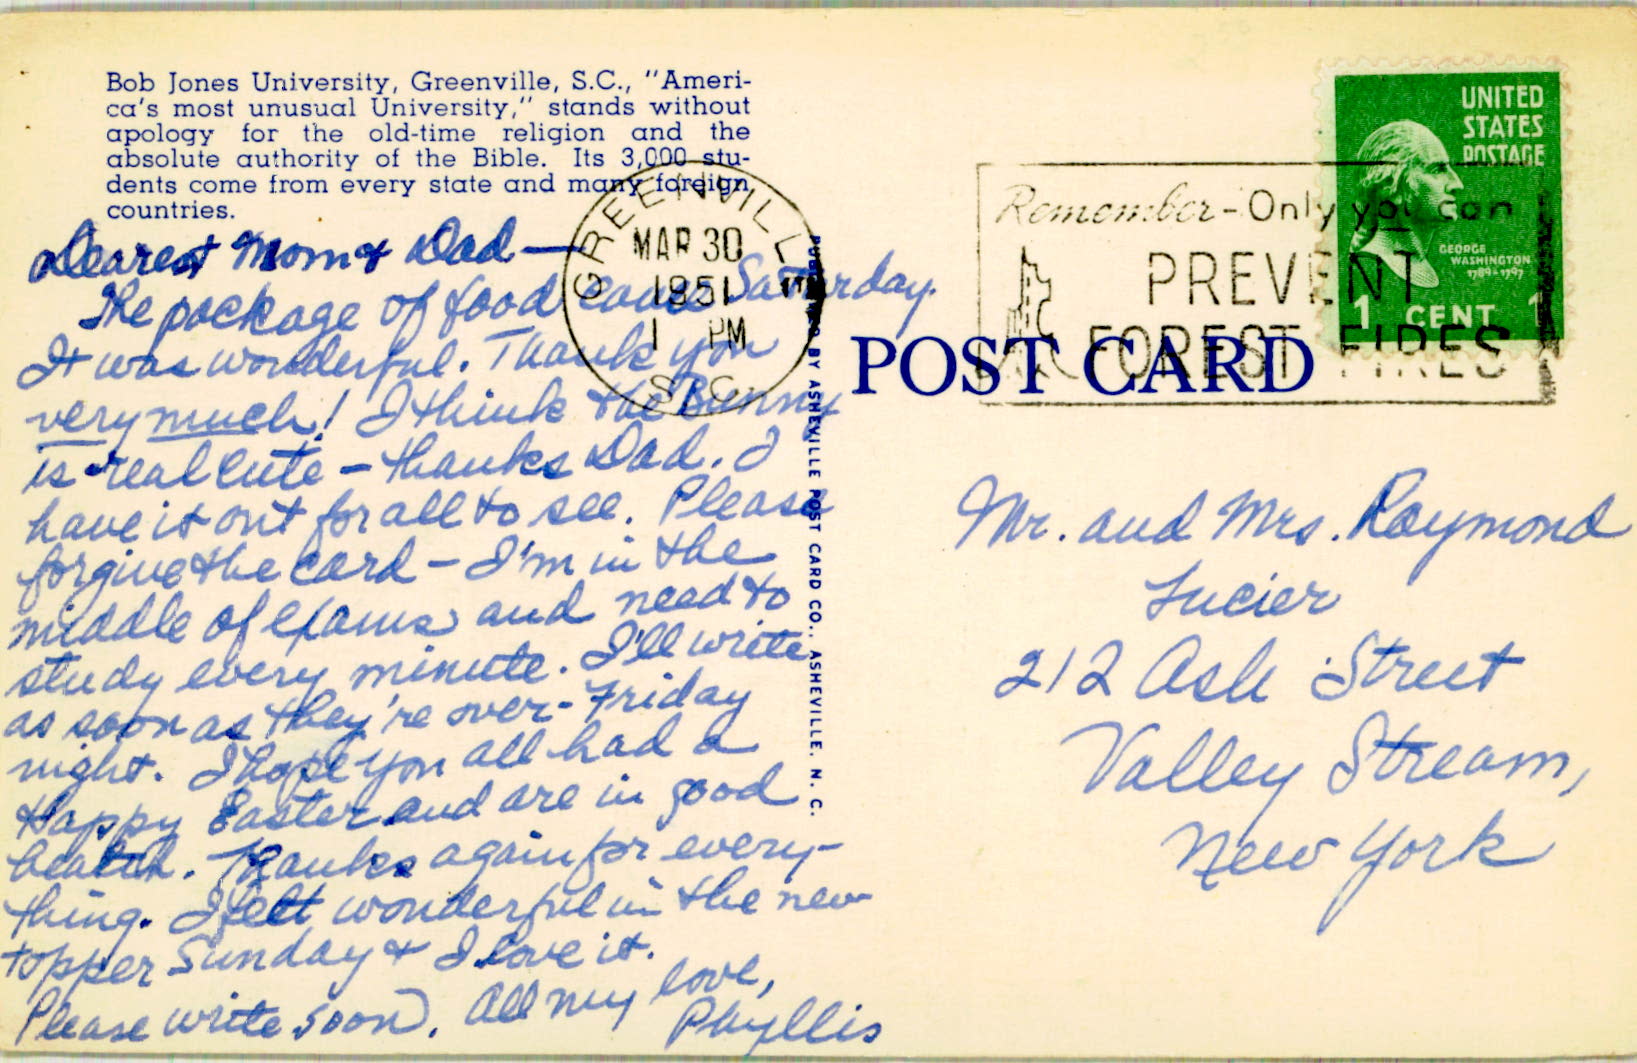 Bob Jones University, Greenville, S.C., "Ameri-
ca's most unusual University," stands without
apology for the old-time religion and the
absolute authority of the Bible. Its 3,000 stu-
dents come from every state and many foreign
countries.
Dearest Mom & Dad —
The package of food came Saturday.
It was wonderful. Thank you
very much! I think the Bunny
is real cute – thanks Dad. I
have it out for all to see. Please
forgive the card – I'm in the
middle of exams and need to
study every minute. I'll write
as soon as they're over - Friday
night. I hope you all had a
Happy Easter and are in good
health. Thanks again for every-
thing. I felt wonderful in the new
topper Sunday & I love it.
Please write soon. All my love,
Phyllis
GREENVILLE
MAR 30
1951
1 PM
S.C.
PUBLISHED BY ASHEVILLE POST CARD CO., ASHEVILLE, N. C.
POST CARD
Remember - Only you can
PREVENT
FOREST FIRES
UNITED
STATES
POSTAGE
GEORGE
WASHINGTON
1789-1797
1 CENT 1
Mr. and Mrs. Raymond
Lucier
212 Ash Street
Valley Stream,
New York